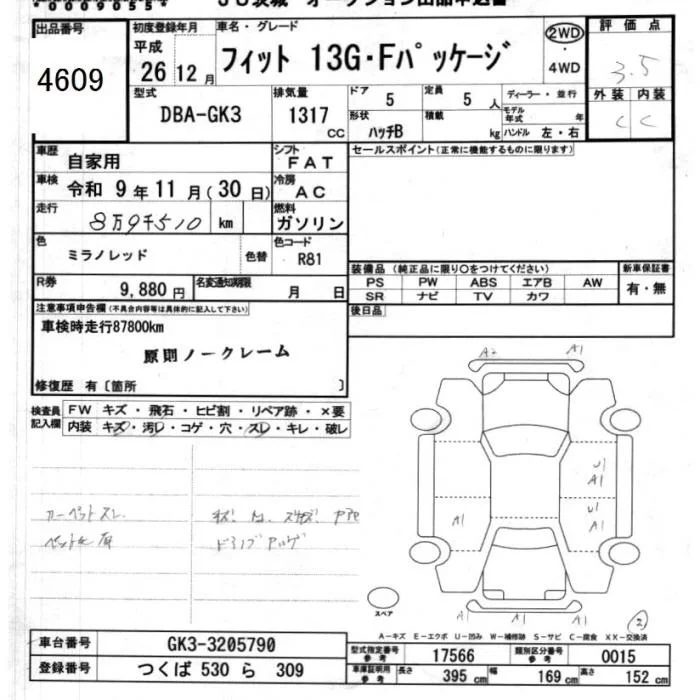 出品番号 初度登録年月 車名・グレード 2WD 評価点
4609 平成 26年 12月 フィット 13G・Fパッケージ 4WD 3.5
型式 排気量 ドア 定員 ディーラー・並行 外装 内装
DBA-GK3 1317 CC 5 5 人 モデル年式 年 C C
形状 ハッチB 積載 kg ハンドル 左・右
車歴 自家用 シフト FAT セールスポイント(正常に機能するものに限ります)
車検 令和 9年 11月 (30日) 冷房 AC
走行 8万9千510 km 燃料 ガソリン
色 ミラノレッド 色替 色コード R81
R券 9,880円 名変通知期限 月 日
装備品 (純正品に限り○をつけてください) 新車保証書
PS PW ABS エアB AW 有・無
SR ナビ TV カワ
注意事項申告欄(不具合内容等は具体的に記入して下さい) 後日品
車検時走行87800km
原則ノークレーム
修復歴 有〔箇所 〕
検査員記入欄 FW キズ・飛石・ヒビ割・リペア跡・×要
内装 キズ・汚レ・コゲ・穴・スレ・キレ・破レ
A2 A1
U1
A1
U1
A1 A1
カーペットスレ
A1 A1
スペア
A-キズ E-エクボ U-凹み W-補修跡 S-サビ C-腐食 XX-交換済
車台番号 GK3-3205790 型式指定番号 参考 17566 類別区分番号 参考 0015
登録番号 つくば 530 ら 309 車庫証明用 参考 長さ 395 cm 幅 169 cm 高さ 152 cm